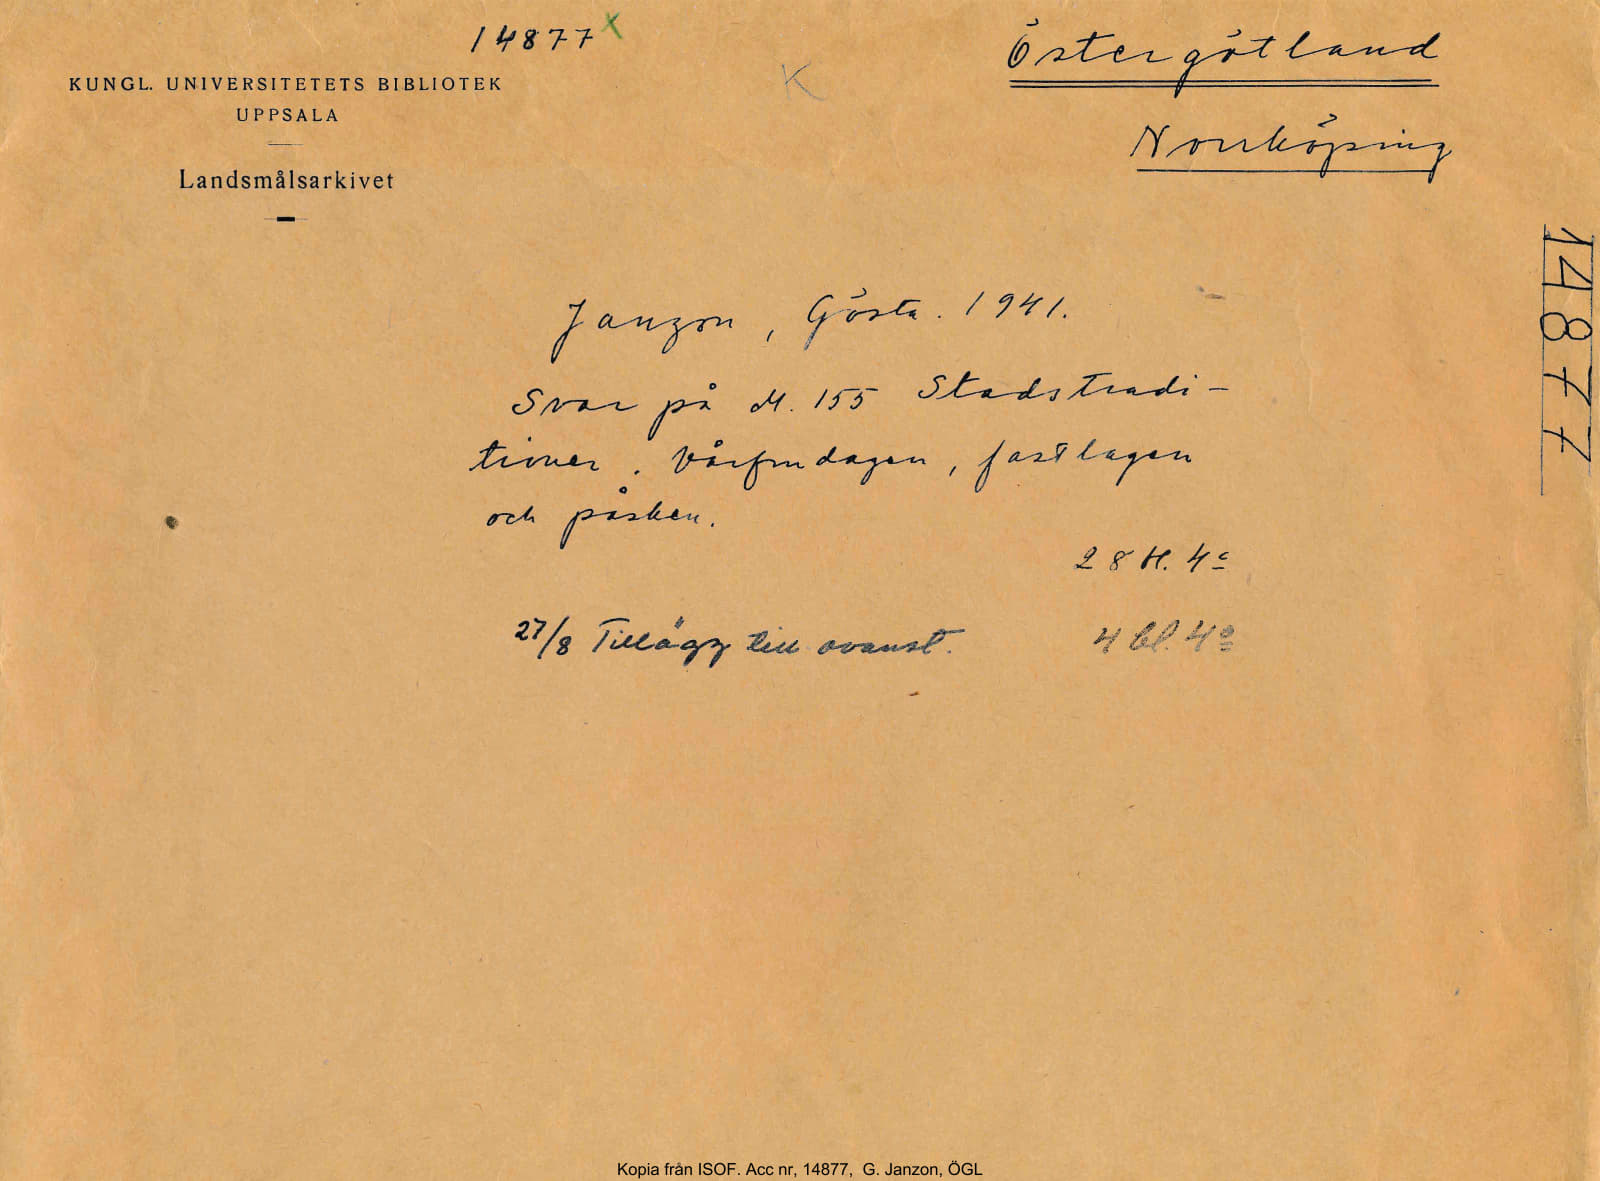 14877 x
KUNGL. UNIVERSITETETS BIBLIOTEK
UPPSALA
Landsmålsarkivet
K
Östergötland
Norrköping
14877
Janzon, Gösta. 1941.
Svar på M. 155 Stadstradi-
tioner. Vårfrudagen, fastlagen
och påsken.
28 bl. 4º
27/8 Tillägg till ovanst. 4 bl. 4º
Kopia från ISOF. Acc nr, 14877, G. Janzon, ÖGL